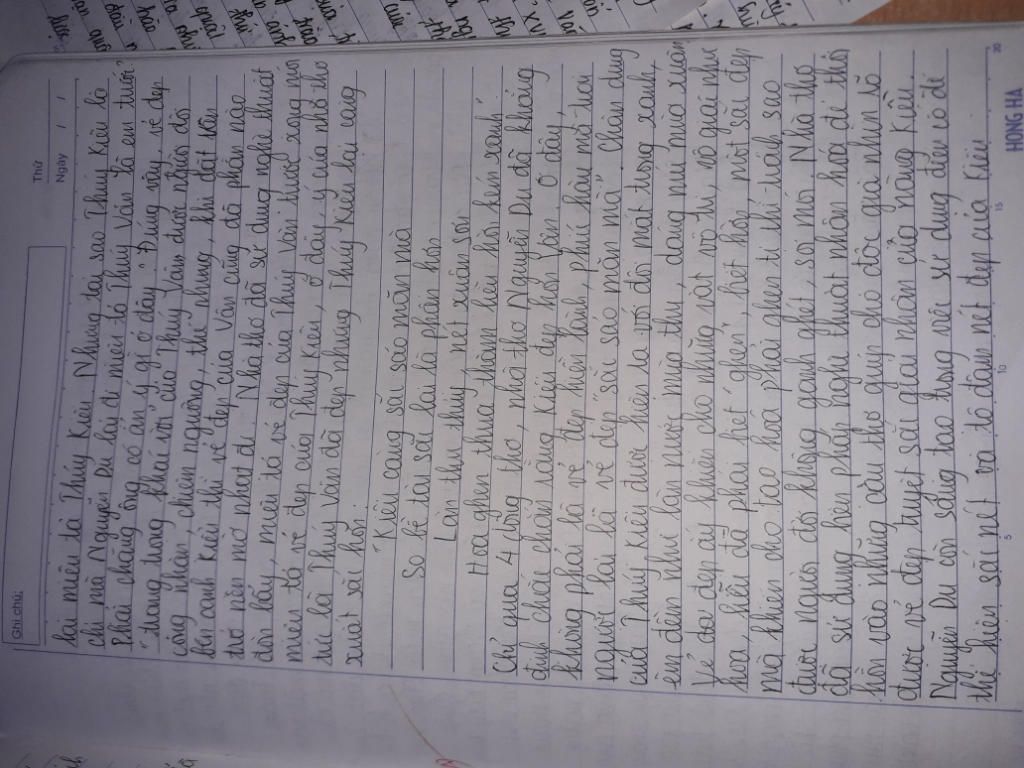 Ghi chú:
Thứ
Ngày / /
lại miêu tả Thúy Kiều. Nhưng tại sao Thúy Kiều là
chị mà Nguyễn Du lại đi miêu tả Thúy Vân là em trước?
Phải chăng ông có ẩn ý gì ở đây? Đúng vậy, vẻ đẹp
"trang trọng khác vời" của Thúy Vân được nhân đôi
công nhận, chiêm ngưỡng, thế nhưng, khi đặt lên
bên cạnh Kiều thì vẻ đẹp của Vân cũng đã phần nào
trở nên mờ nhạt đi. Nhà thơ đã sử dụng nghệ thuật
đòn bẩy, miêu tả vẻ đẹp của Thúy Vân trước xong mới
miêu tả vẻ đẹp của Thúy Kiều, ở đây, ý của nhà thơ
tức là Thúy Vân đã đẹp nhưng Thúy Kiều lại càng
xuất sắc hơn:
"Kiều càng sắc sảo mặn mà
So bề tài sắc lại là phần hơn
Làn thu thủy nét xuân sơn
Hoa ghen thua thắm liễu hờn kém xanh"
Chỉ qua 4 dòng thơ, nhà thơ Nguyễn Du đã khẳng
định chắc chắn rằng Kiều đẹp hơn Vân. Ở đây,
không phải là vẻ đẹp hiền lành, phúc hậu mà thay
người lại là vẻ đẹp "sắc sảo mặn mà". Chân dung
của Thúy Kiều được hiện ra với đôi mắt trong xanh,
êm đềm như làn nước mùa thu, dáng núi mùa xuân
Vẻ đẹp ấy khiến cho những vật vô tri, vô giác như
hoa, liễu đã phải hết "ghen", hết hờn, một sắc đẹp
mà khiến cho tạo hoá phải ghen tị thì trách sao
được người đời không ganh ghét, soi mói. Nhà thơ
đã sử dụng biện pháp nghệ thuật nhân hoá để thổi
hồn vào những câu thơ giúp cho độc giả nhìn rõ
được vẻ đẹp tuyệt sắc giai nhân của nàng Kiều.
Nguyễn Du còn sáng tạo trong việc sử dụng điển cố để
thể hiện sắc nét và tô đậm nét đẹp của Kiều
5 10 15 20
HONG HA